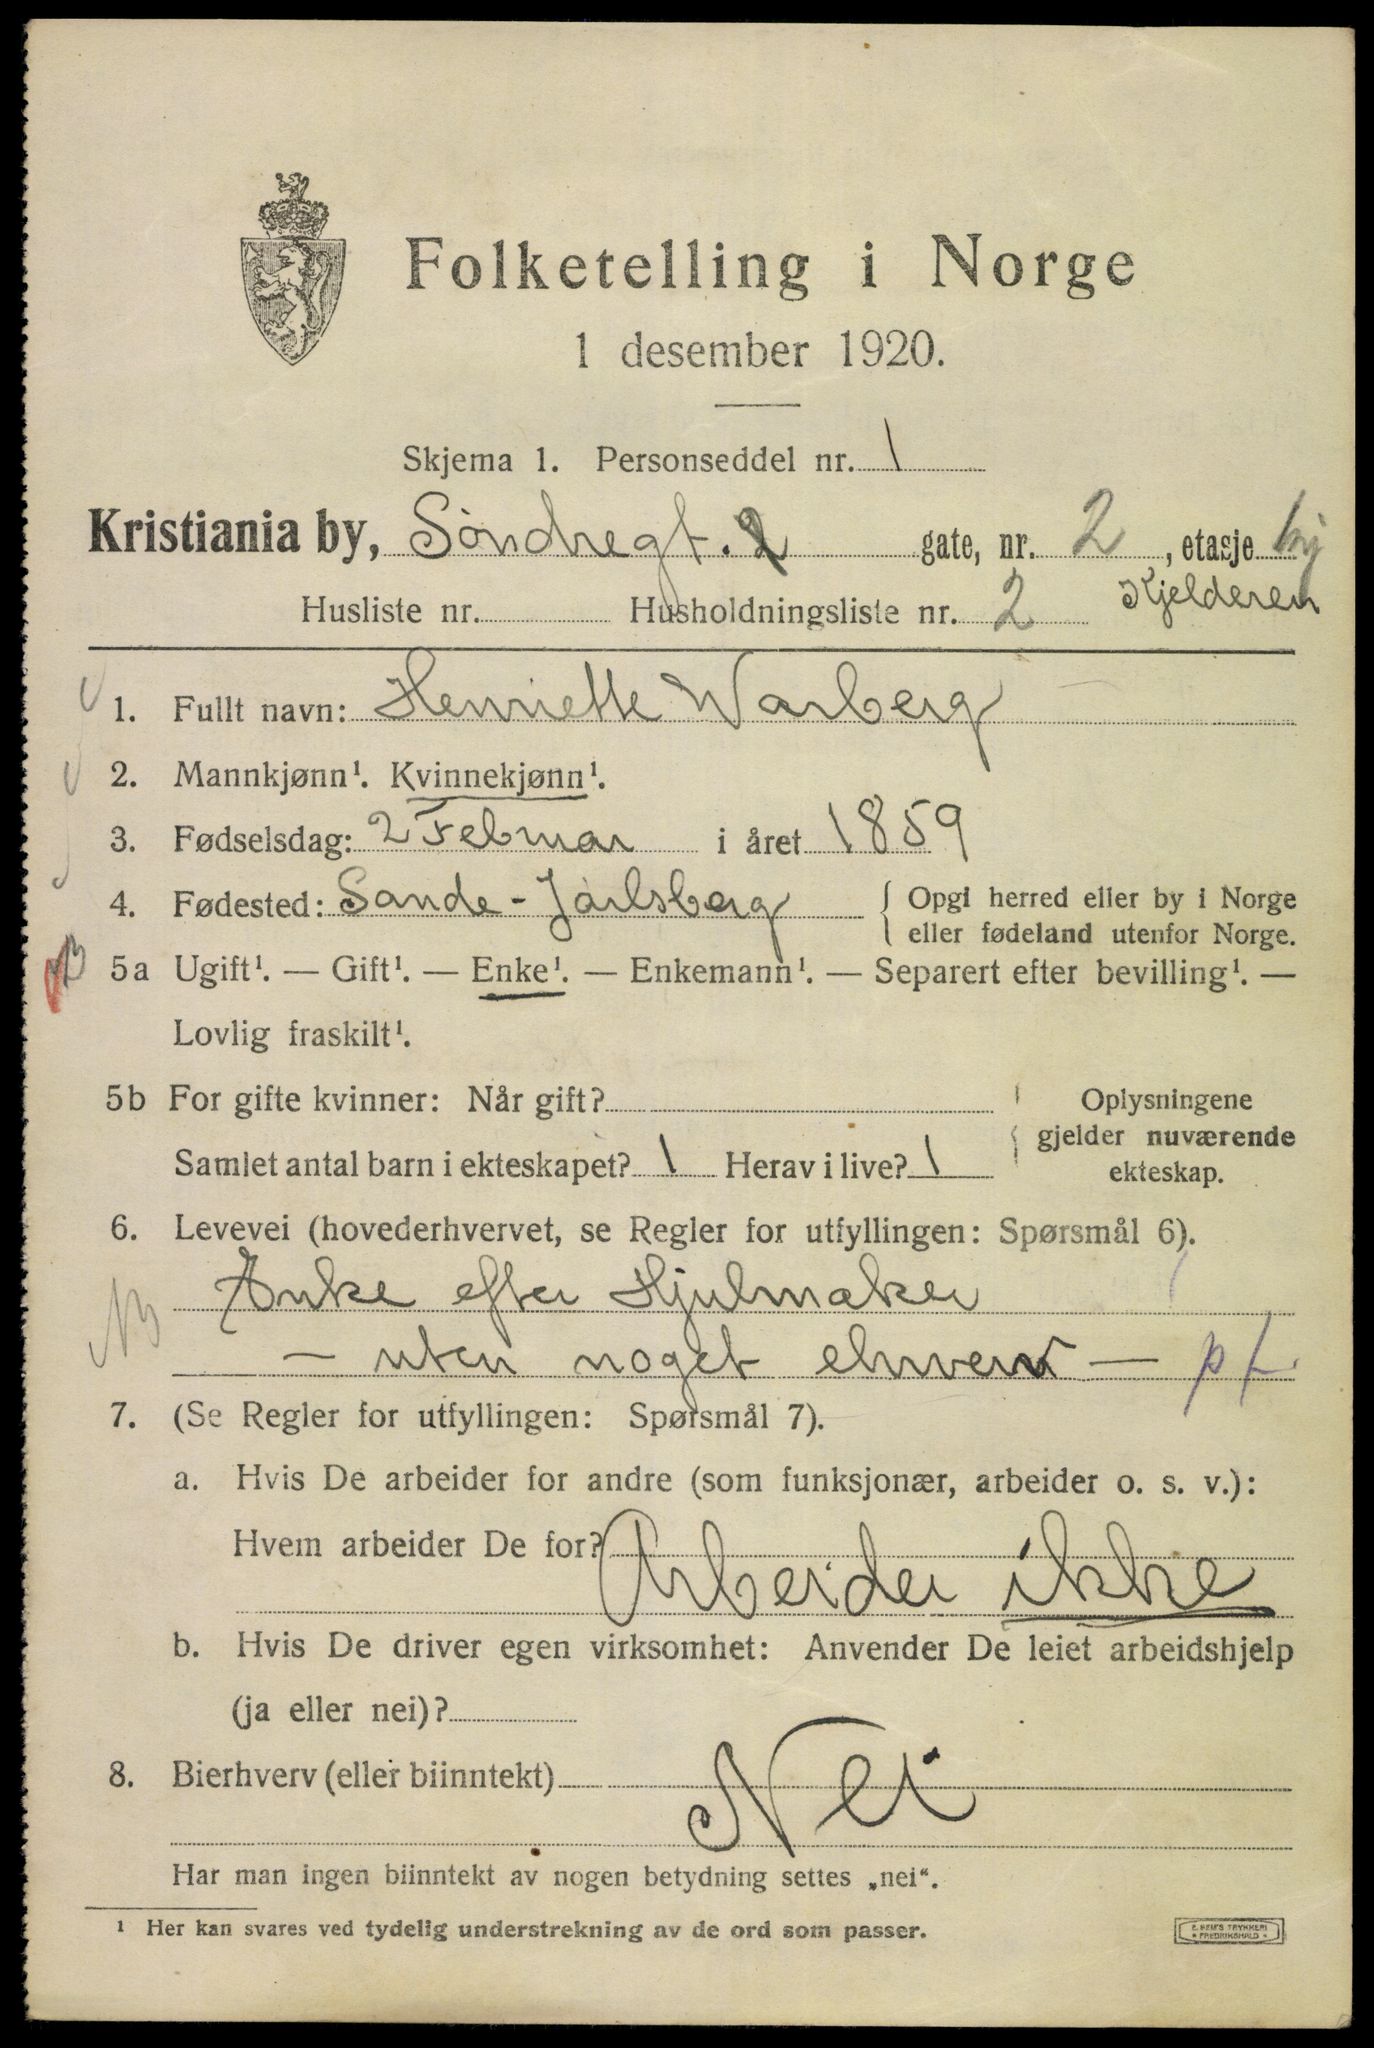 Folketelling i Norge
1 desember 1920.
Skjema 1. Personseddel nr. 1
Kristiania by, Söndregt. 2 gate, nr. 2, etasje
Husliste nr. Husholdningsliste nr. 2 Kjelderen
1. Fullt navn: Henriette Warberg
2. Mannkjønn¹. Kvinnekjønn¹.
3. Fødselsdag: 2 Februar i året 1859
4. Fødested: Sande - Jarlsberg { Opgi herred eller by i Norge
eller fødeland utenfor Norge.
5a Ugift¹. — Gift¹. — Enke¹. — Enkemann¹. — Separert efter bevilling¹. —
Lovlig fraskilt¹.
5b For gifte kvinner: Når gift? Oplysningene
gjelder nuværende
Samlet antal barn i ekteskapet? 1 Herav i live? 1
ekteskap.
6. Levevei (hovederhvervet, se Regler for utfyllingen: Spørsmål 6).
Enke efter Hjulmaker
— uten noget ehverv —
7. (Se Regler for utfyllingen: Spørsmål 7).
a. Hvis De arbeider for andre (som funksjonær, arbeider o. s. v.):
Hvem arbeider De for?
Arbeider ikke
b. Hvis De driver egen virksomhet: Anvender De leiet arbeidshjelp
(ja eller nei)?
8. Bierhverv (eller biinntekt) Nei
Har man ingen biinntekt av nogen betydning settes „nei“.
¹ Her kan svares ved tydelig understrekning av de ord som passer.
E. SEM'S TRYKKERI
FREDRIKSHALD